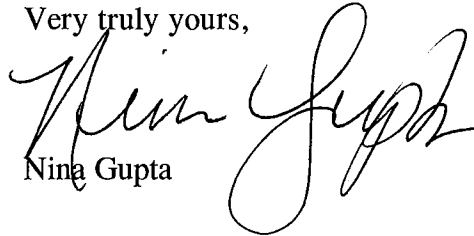 Very truly yours,
Nina Gupta
Nina Gupta